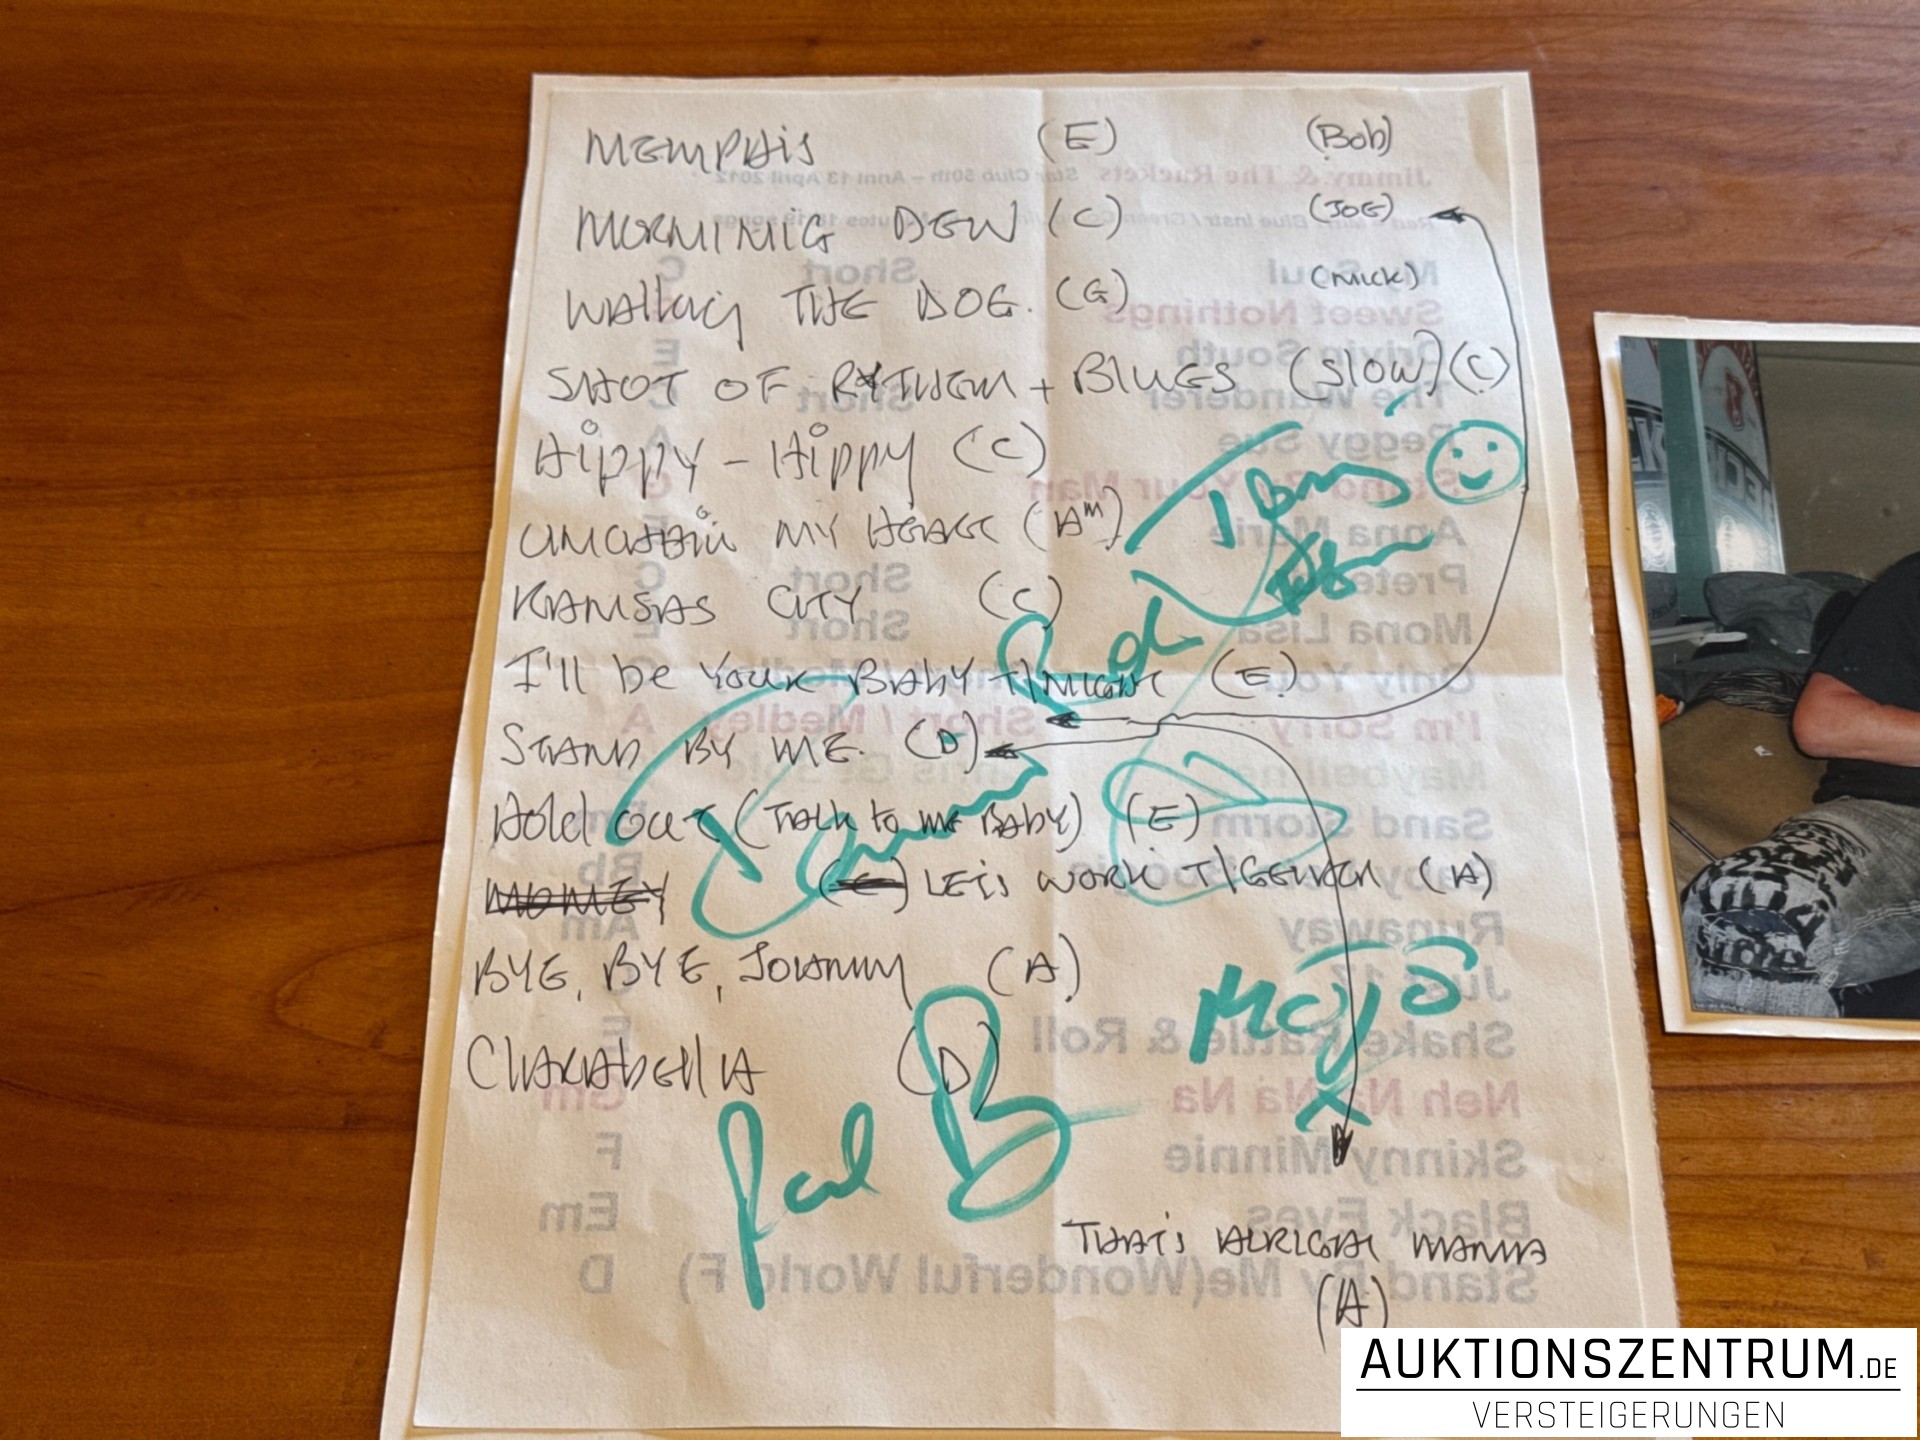 MEMPHiS (E) (Bob)
MORNINIG DEW (C) (JOE)
WAlkiNg THE DOG. (G) (MICK)
SHOT OF RYTHEM + BlUES (SlOW) (C)
Hippy - Hippy (C)
UNCHAiN MY HEART (Am)
KANSAS CITY (C)
I'll be YOUR BAbY T/NIGHT (E)
STAND BY ME. (D)
Hold OUT (TAlk to me BAbY) (E)
MONEY (E) LET'S WORK T/GETHER (A)
BYE, BYE, JOHNNY (A)
ClARAbEllA (D)
THAT'S ALRIGHT MAMA
(A)
MOJO
Paul B
Jimmy & The Rackets Star Club 50th – Anni 13 April 2012
Soul Short C
Sweet Nothings
Drivin South E
The Wanderer Short C
Peggy Sue A
Stand By Your Man
Anna Marie
Short C
Mona Lisa Short E
Only You
I'm Sorry Short / Medley A
Sand Storm
Bb
Runaway Am
Shake Rattle & Roll E
Neh Na Na Na Gm
Skinny Minnie F
Black Eyes Em
Stand By Me(Wonderful World F) D
AUKTIONSZENTRUM.DE
VERSTEIGERUNGEN